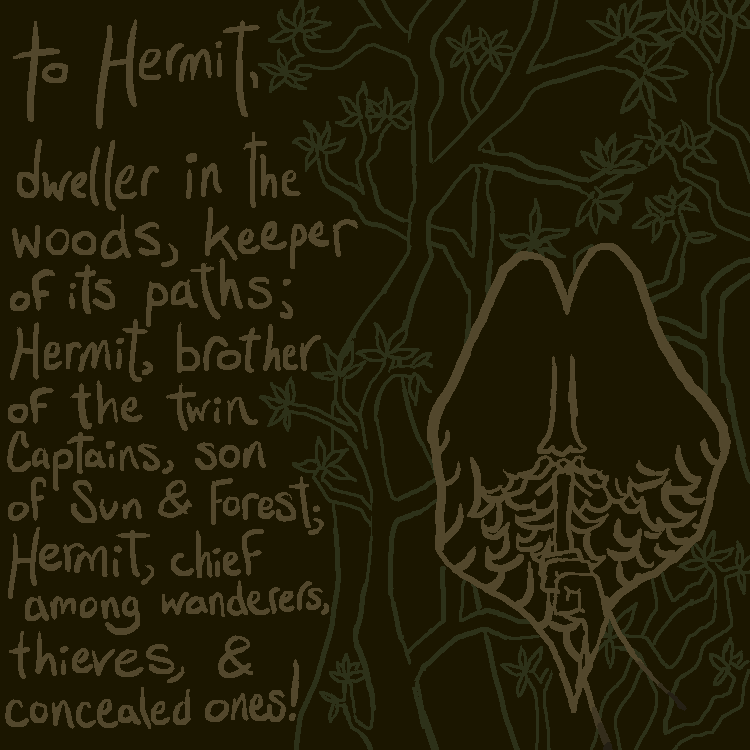 to Hermit,
dweller in the
woods, keeper
of its paths;
Hermit, brother
of the twin
Captains, son
of Sun & Forest;
Hermit, chief
among wanderers,
thieves, &
concealed ones!